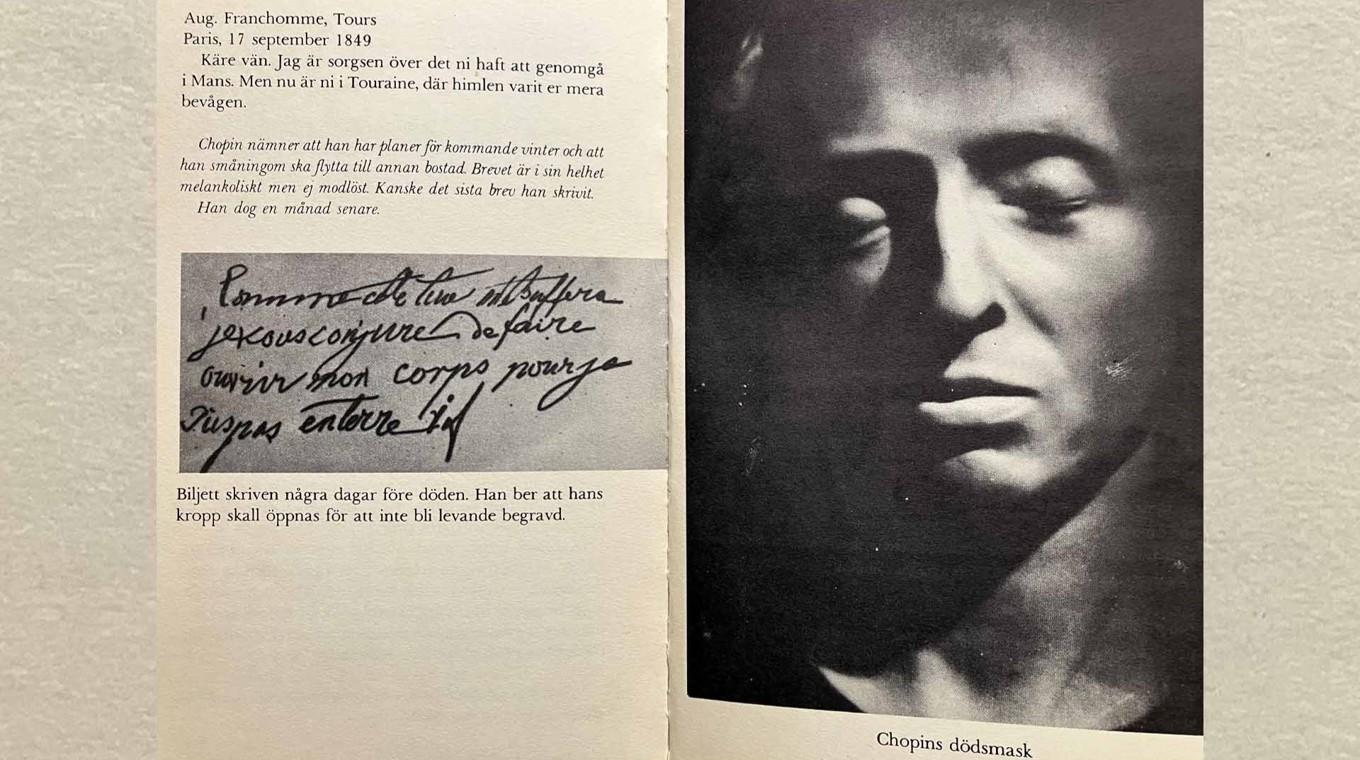 Aug. Franchomme, Tours
Paris, 17 september 1849
Käre vän. Jag är sorgsen över det ni haft att genomgå
i Mans. Men nu är ni i Touraine, där himlen varit er mera
bevågen.
Chopin nämner att han har planer för kommande vinter och att
han småningom ska flytta till annan bostad. Brevet är i sin helhet
melankoliskt men ej modlöst. Kanske det sista brev han skrivit.
Han dog en månad senare.
Comme cette
je vous conjure de faire
ouvrir mon corps pour
pas enterré vif
Biljett skriven några dagar före döden. Han ber att hans
kropp skall öppnas för att inte bli levande begravd.
Chopins dödsmask